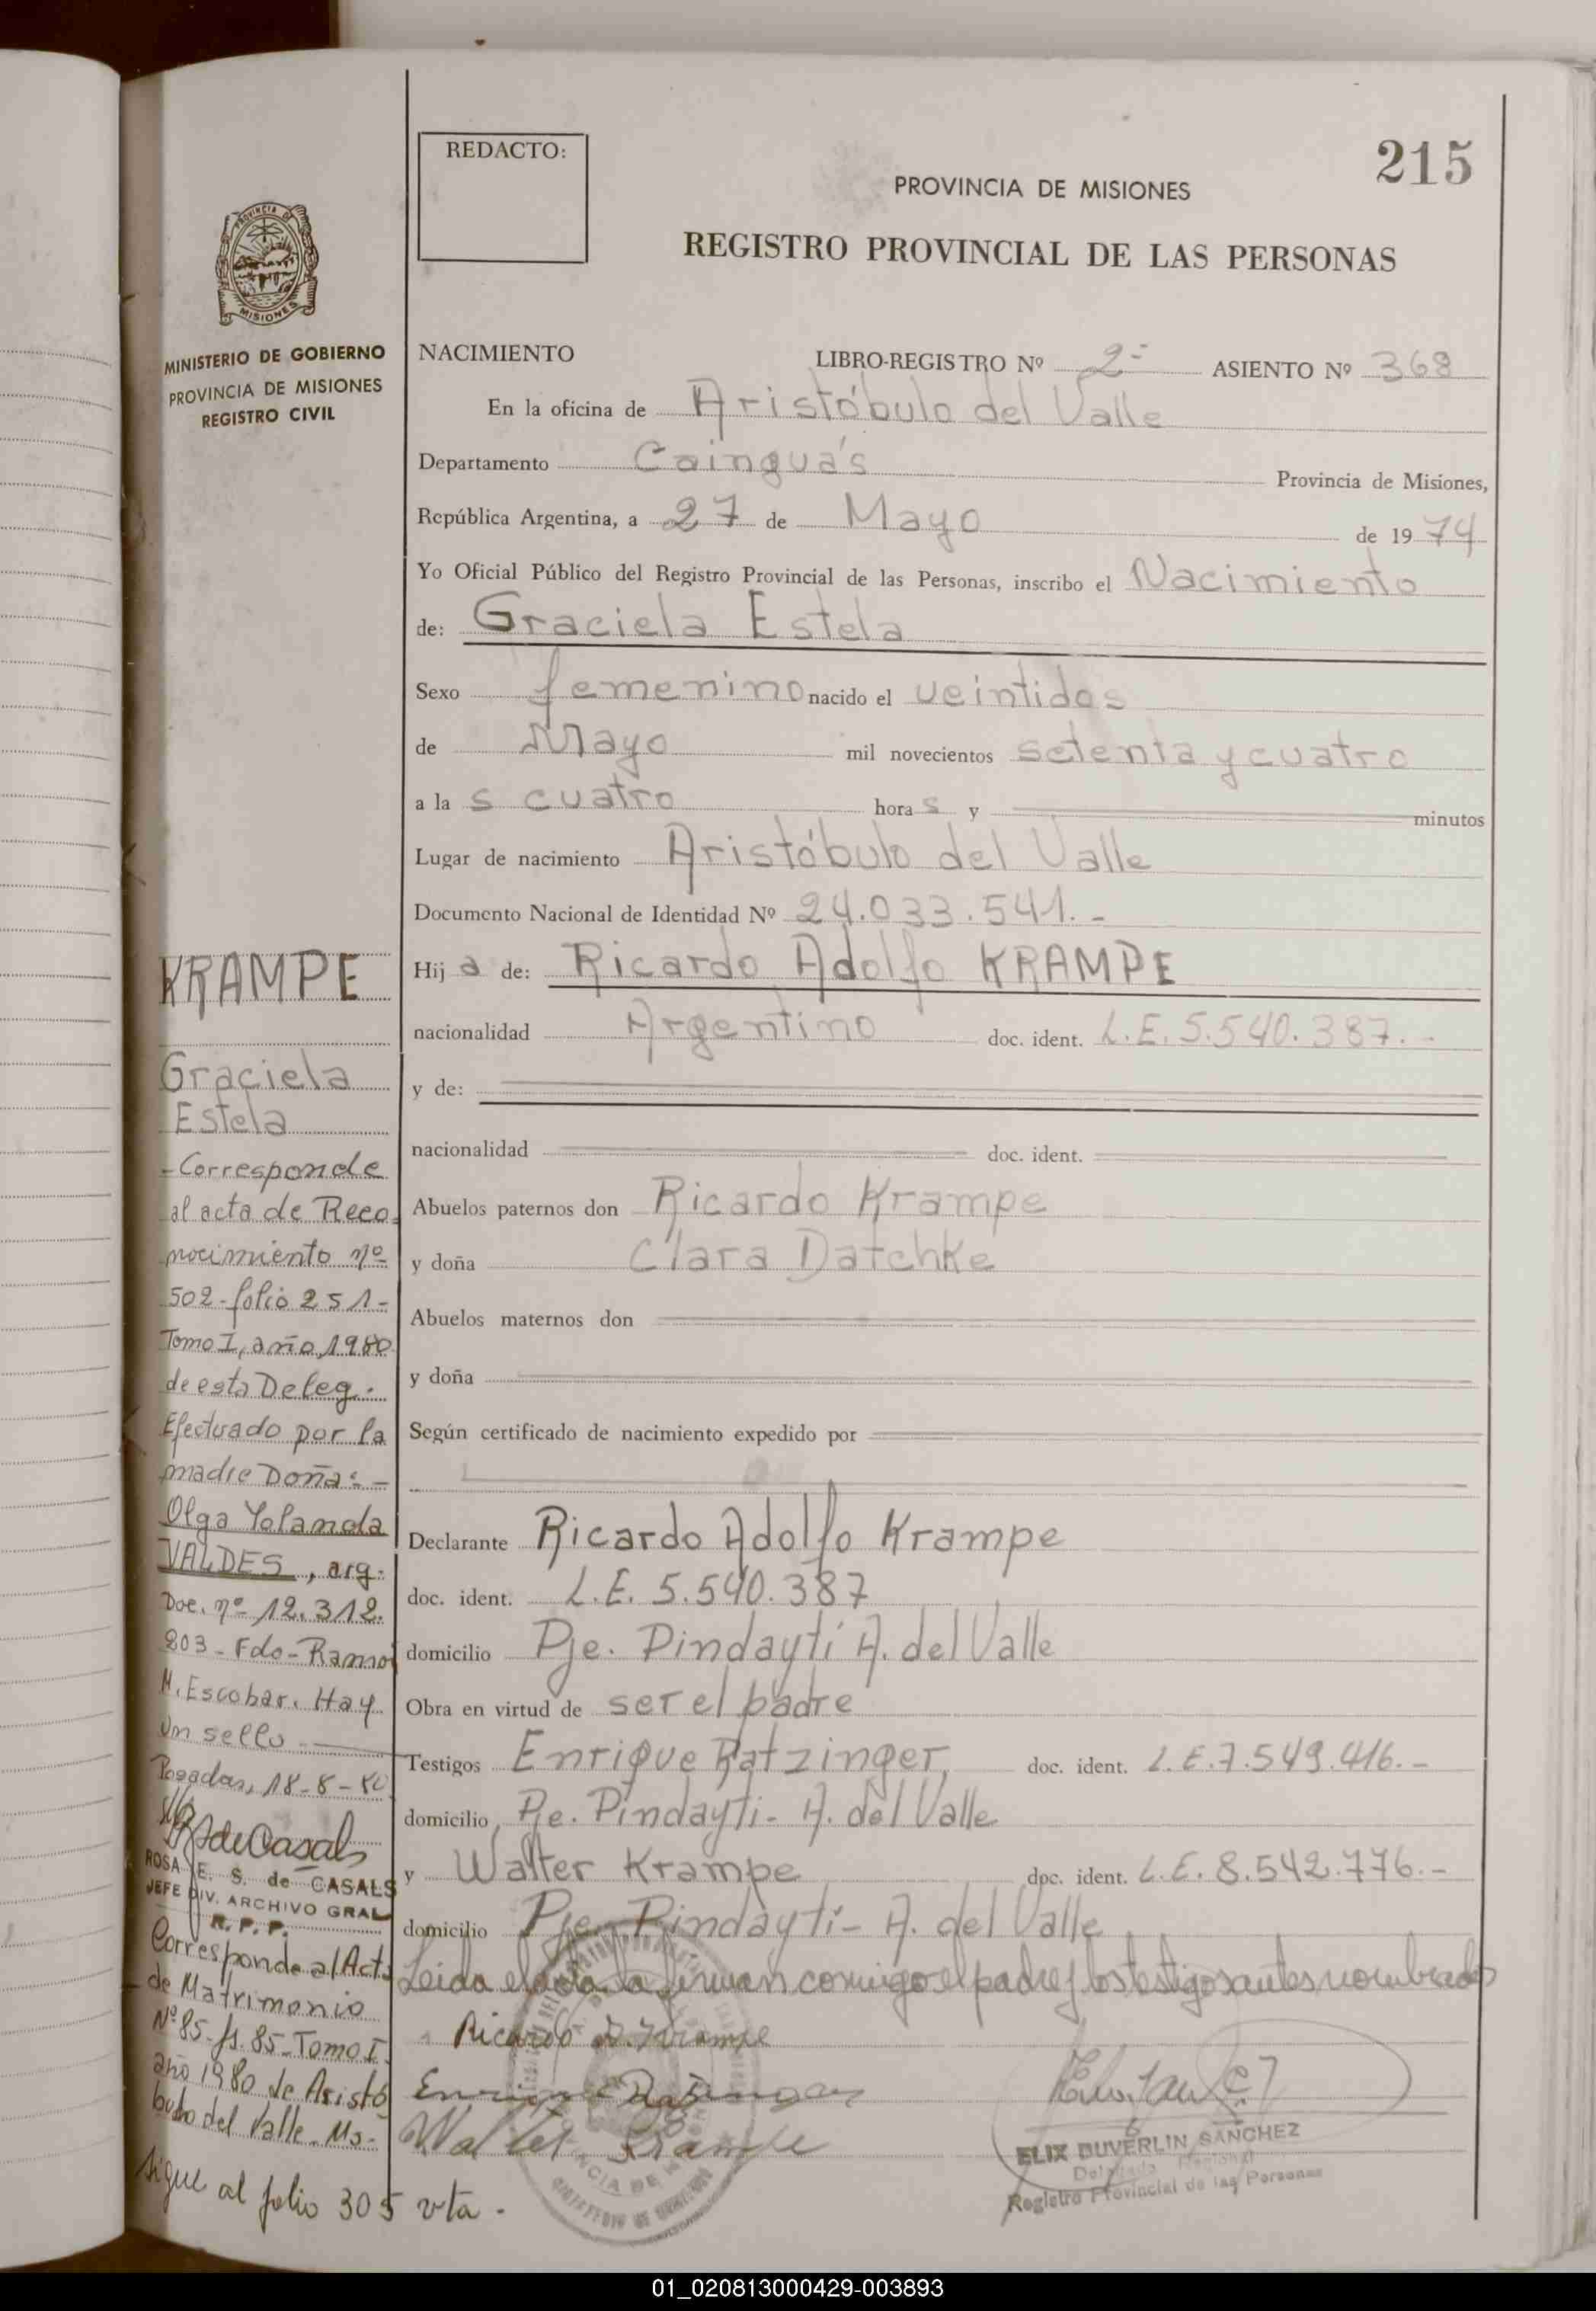 215
REDACTO:
PROVINCIA DE MISIONES
REGISTRO PROVINCIAL DE LAS PERSONAS
PROVINCIA DE
MISIONES
MINISTERIO DE GOBIERNO
PROVINCIA DE MISIONES
REGISTRO CIVIL
NACIMIENTO LIBRO-REGISTRO Nº 2- ASIENTO Nº 368
En la oficina de Aristóbulo del Valle
Departamento Cainguás Provincia de Misiones,
República Argentina, a 27 de Mayo de 1974
Yo Oficial Público del Registro Provincial de las Personas, inscribo el Nacimiento
de: Graciela Estela
Sexo femenino nacido el veintidos
de Mayo mil novecientos setenta y cuatro
a la s cuatro hora s y minutos
Lugar de nacimiento Aristóbulo del Valle
Documento Nacional de Identidad Nº 24.033.541.-
Hij a de: Ricardo Adolfo KRAMPE
nacionalidad Argentino doc. ident. L.E. 5.540.387.-
y de:
nacionalidad doc. ident.
Abuelos paternos don Ricardo Krampe
y doña Clara Datchke
Abuelos maternos don
y doña
Según certificado de nacimiento expedido por
Declarante Ricardo Adolfo Krampe
doc. ident. L.E. 5.540.387
domicilio Pje. Pindaytí A. del Valle
Obra en virtud de ser el padre
Testigos Enrique Ratzinger, doc. ident. L.E. 7.549.416.-
domicilio, Pje. Pindayti- A. del Valle
y Walter Krampe doc. ident. L.E. 8.542.776.-
domicilio Pje. Pindaytí- A. del Valle
Leida el acta la firman conmigo el padre y los testigos antes nombrados
Ricardo A. Krampe
Enrique Ratzinger
Walter Krampe
ELIX DUVERLIN SANCHEZ
Delegado Regional
Registro Provincial de las Personas
KRAMPE
Graciela
Estela
-Corresponde
al acta de Reco-
nocimiento nº
502-folio 251-
Tomo I, año 1980
de esta Deleg.
Efectuado por la
madre Doña:-
Olga Yolanda
VALDES, arg.
Doc. nº 12.312.
803-Fdo-Ramón
H. Escobar. Hay
un sello
Posadas, 18-8-80
RdeCasals
ROSA E. S. de CASALS
JEFE DIV. ARCHIVO GRAL
R. P. P.
Corresponde al Acta
de Matrimonio
Nº 85-fs. 85-Tomo I
año 1980 de Aristó
bulo del Valle-Ms-
sigue al folio 305 vta.-
01_020813000429-003893